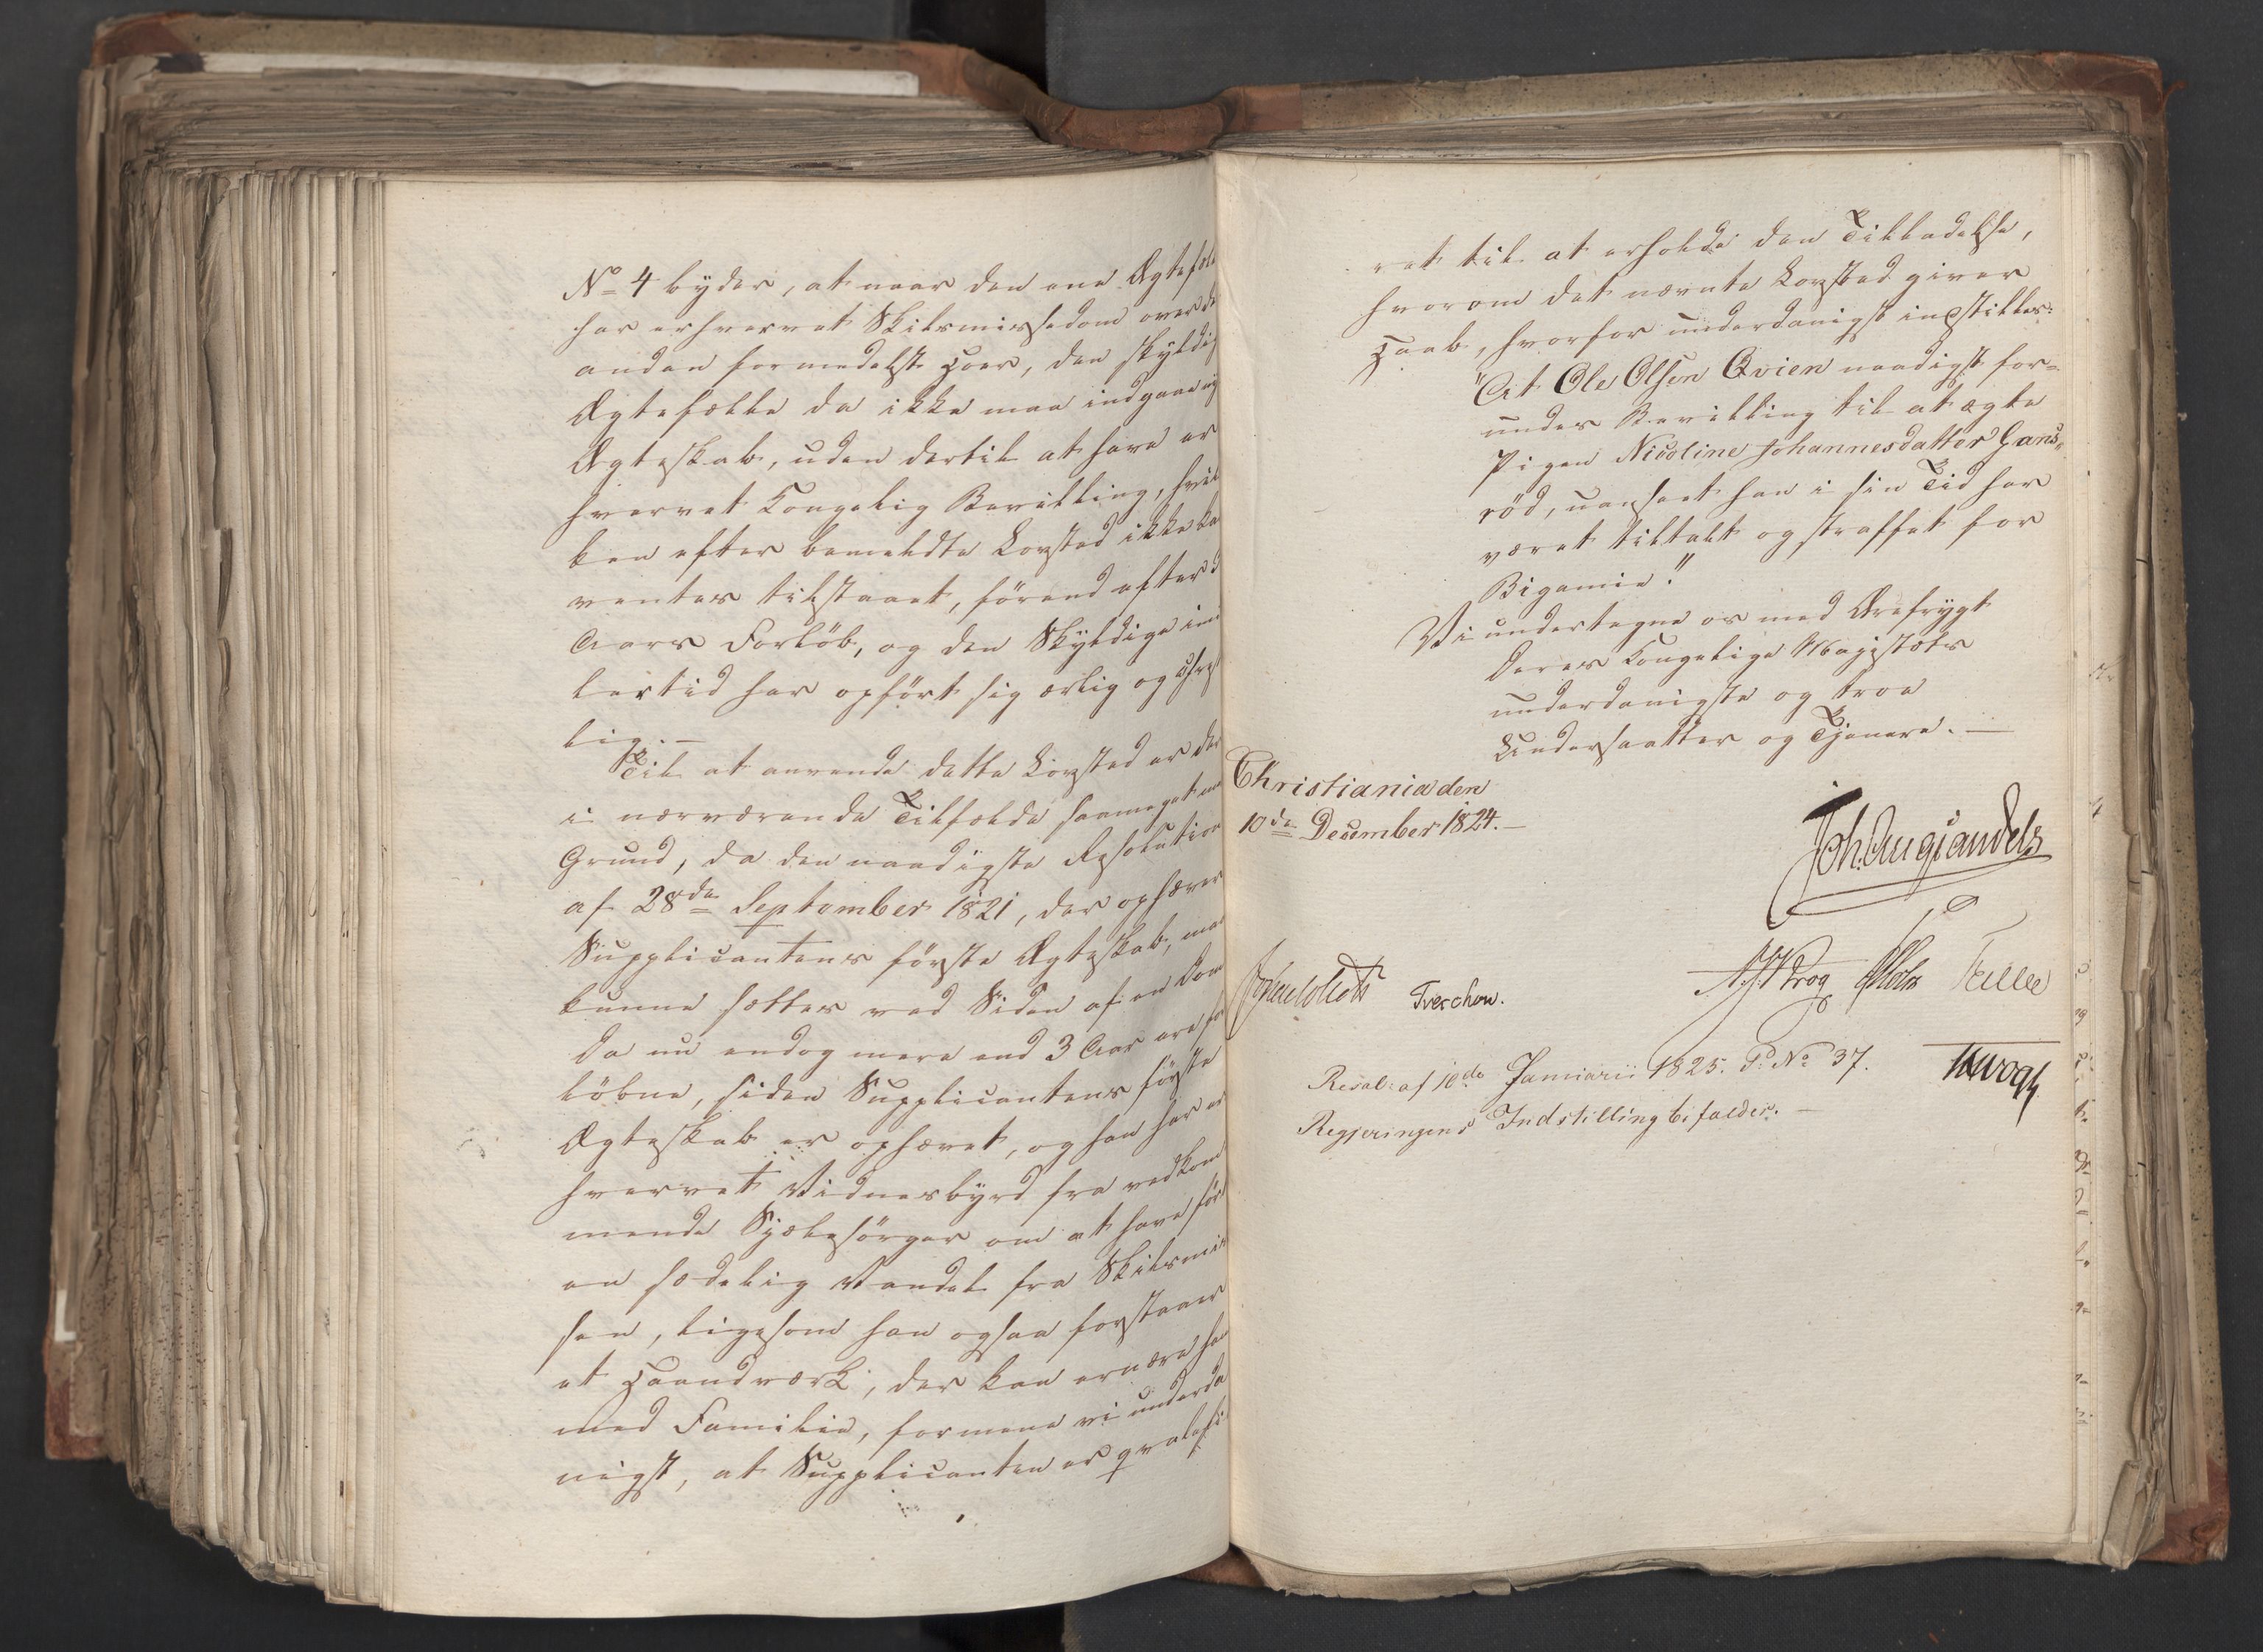 No 4 byder, at naar den ene Ægtefæl
har erhvervet Skilsmissedom over d
anden formedelst Hoer, den skyldig
Ægtefælle da ikke maa indgaae ny
Ægteskab, uden dertil at have er
hvervet Kongelig Bevilling, hvil
ken efter bemeldte Lovsted ikke ka
ventes tilstaaet, förend efter 3
Aars Forlöb, og den Skyldige imid
lertid har opfört sig ærlig og Chrst
lig. —
Til at anvende dette Lovsted er der
i nærværende Tilfælde saameget me
Grund, da den naadigste Resolution
af 28de September 1821, der ophæver
Supplicantens förste Ægteskab, maa
kunne sættes ved Siden af en Dom
Da nu endog mere end 3 Aar ere for
löbne, siden Supplicantens förste
Ægteskab er ophævet, og han har er
hvervet Vidnesbyrd fra vedkom
mende Sjælesörger om at have fört
en sædelig Vandel fra Skilsmis
sen, ligesom han ogsaa forstaaer
et Haandværk, der kan ernære ham
med Familie, formene vi underda
nigst, at Supplicanten er qvalefi
ret til at erholde den Tilladelse,
hvorom det nævnte Lovsted giver
Haab, hvorfor underdanigst indstilles:
"At Ole Olsen Qvien naadigst for=
undes Bevilling til at ægte
Pigen Nicoline Johannesdatter Gans=
röd, uanseet han i sin Tid har
været tiltalt og straffet for
Bigamie."
Vi undertegne os med Ærefrygt
Deres Kongelige Majestæts
underdanigste og troe
Undersaatter og Tjenere. —
Christiania den
10de December 1824. —
Joh. Aug. Sandels
Treschow.
Krog Holst
Resol: af 10de Januarii 1825. P. No 37.
Vogt
Regjeringens Indstilling bifaldes. —